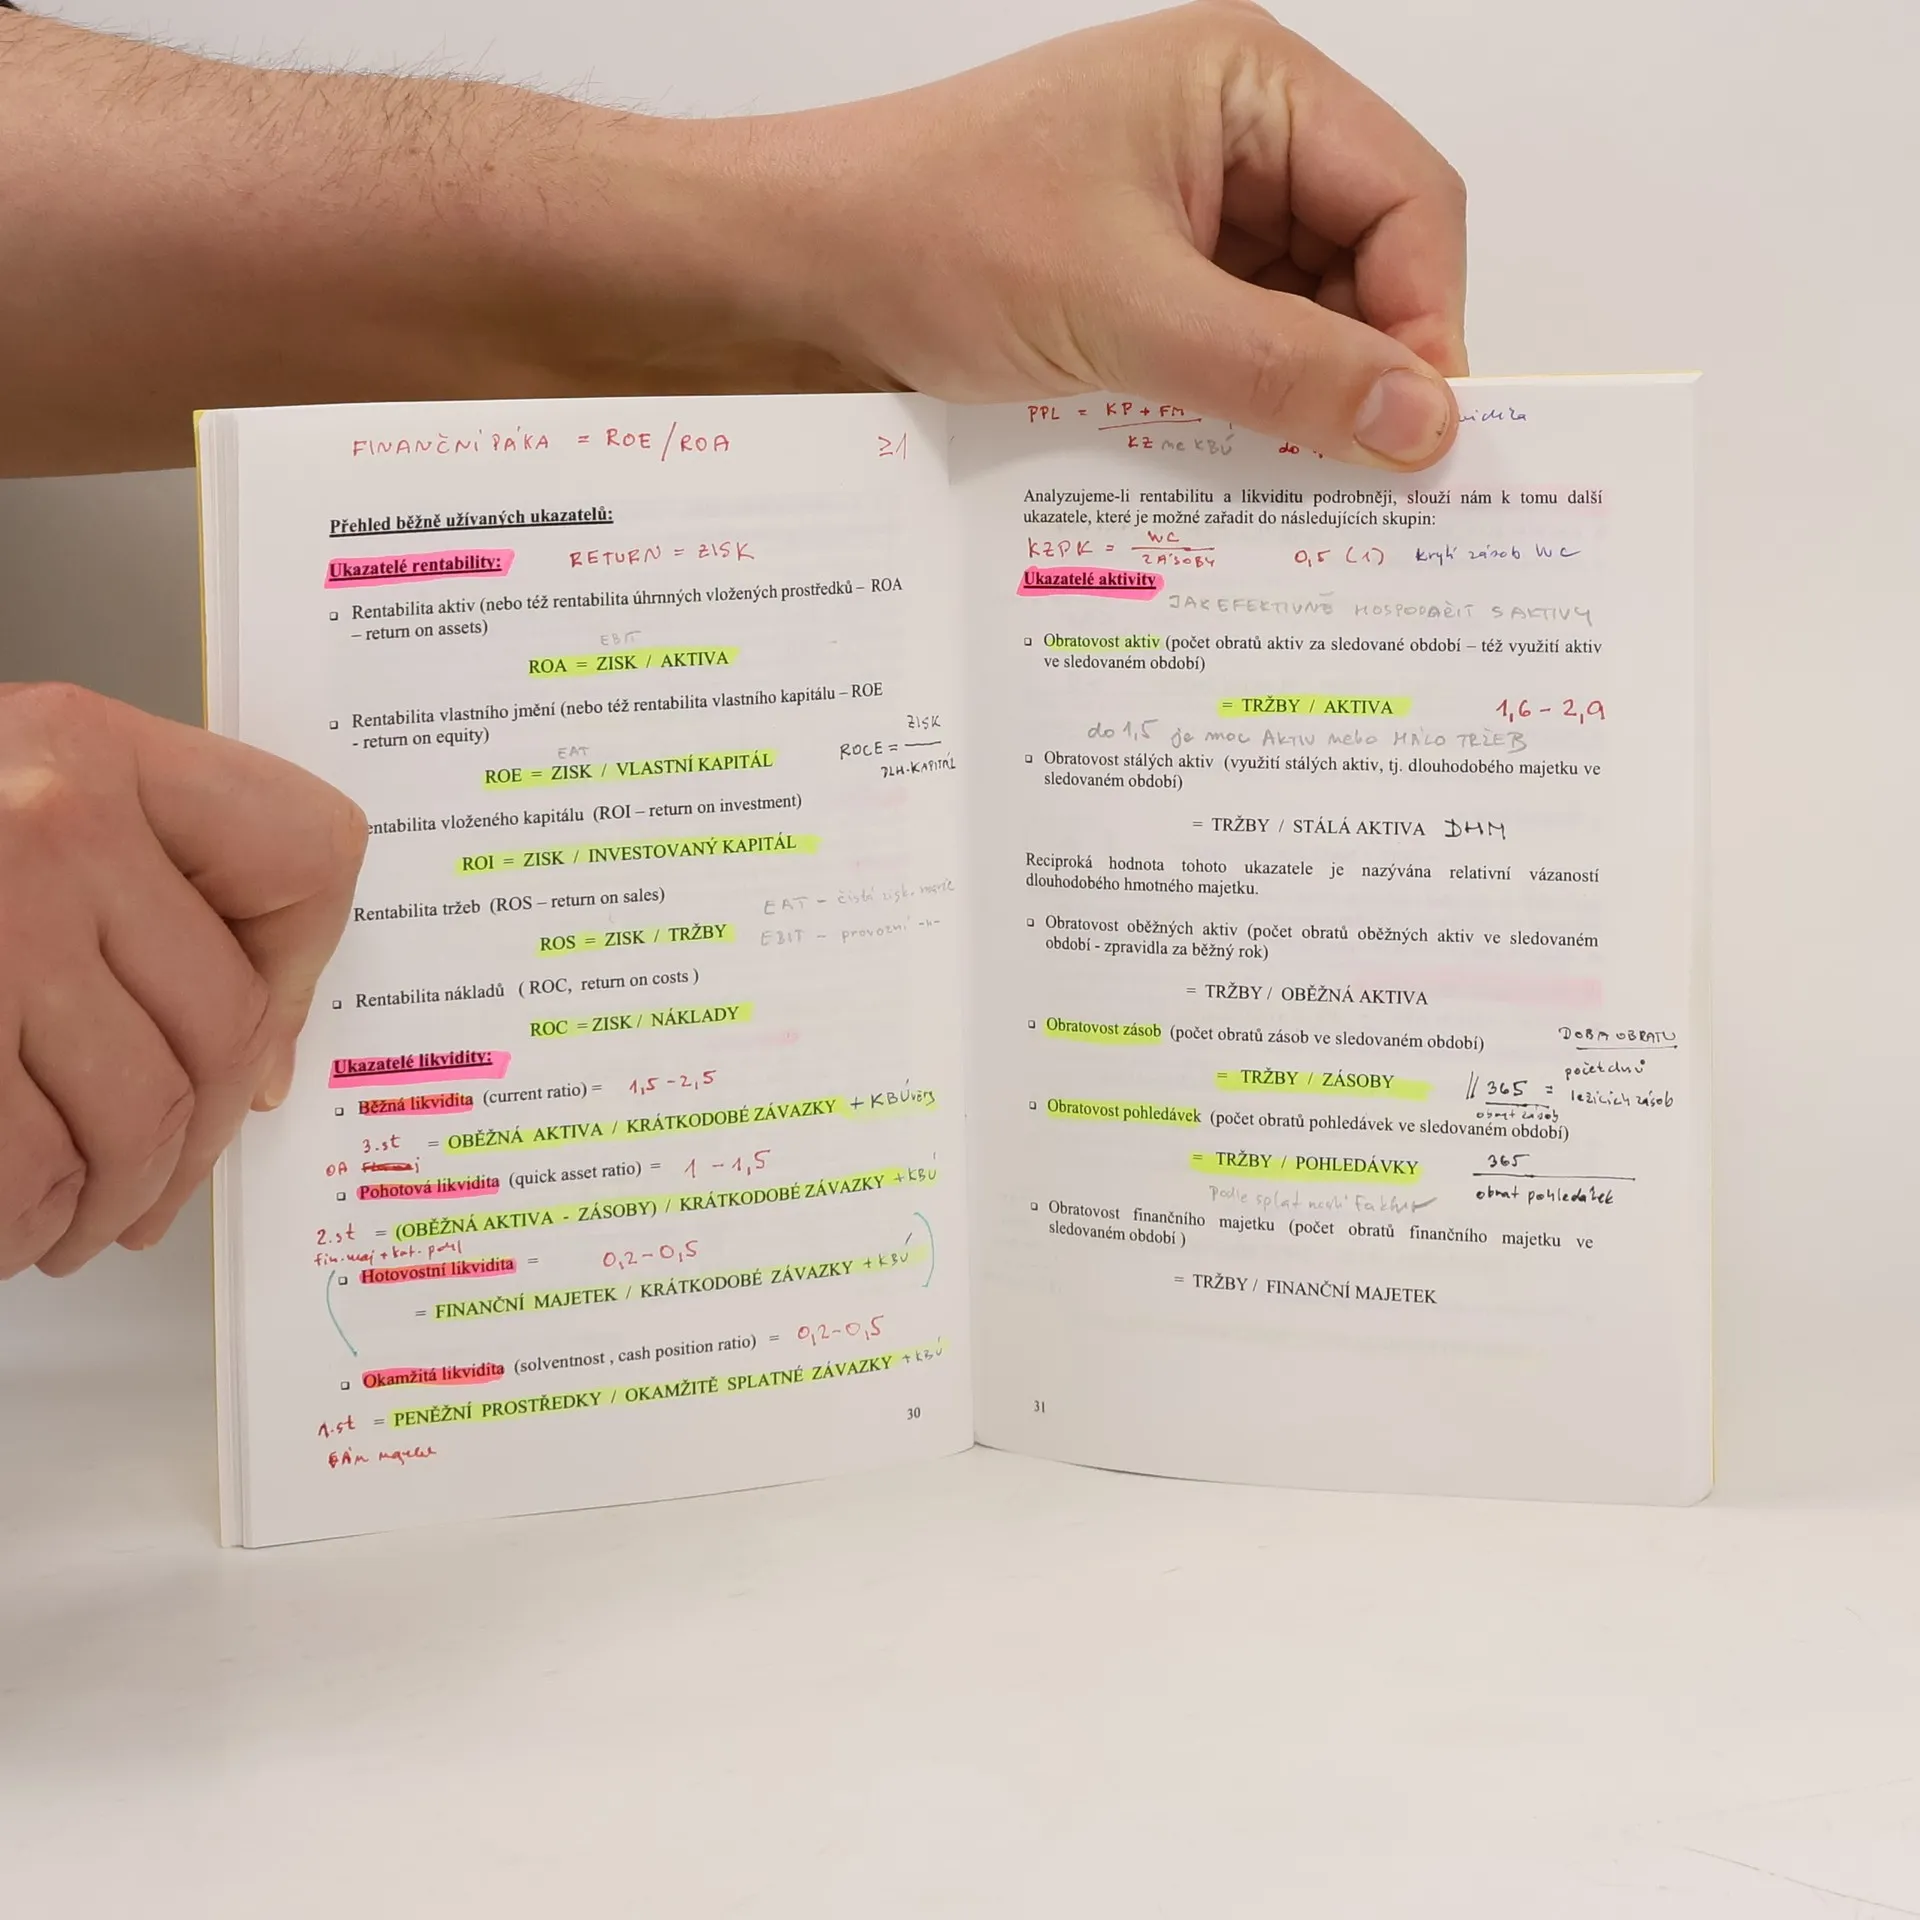 FINANČNÍ PÁKA = ROE/ROA ≥1
Přehled běžně užívaných ukazatelů:
Ukazatelé rentability: RETURN = ZISK
▫ Rentabilita aktiv (nebo též rentabilita úhrnných vložených prostředků – ROA
– return on assets)
EBIT
ROA = ZISK / AKTIVA
▫ Rentabilita vlastního jmění (nebo též rentabilita vlastního kapitálu – ROE
- return on equity)
ZISK
EAT
ROCE =
ROE = ZISK / VLASTNÍ KAPITÁL
DLH. KAPITÁL
entabilita vloženého kapitálu (ROI – return on investment)
ROI = ZISK / INVESTOVANÝ KAPITÁL
Rentabilita tržeb (ROS – return on sales)
EAT - čistá zisk. marže
ROS = ZISK / TRŽBY
EBIT - provozní -"-
▫ Rentabilita nákladů ( ROC, return on costs )
ROC = ZISK / NÁKLADY
Ukazatelé likvidity:
▫ Běžná likvidita (current ratio) = 1,5 - 2,5
3.st = OBĚŽNÁ AKTIVA / KRÁTKODOBÉ ZÁVAZKY + KBÚvěry
OA
▫ Pohotová likvidita (quick asset ratio) = 1 - 1,5
2.st = (OBĚŽNÁ AKTIVA - ZÁSOBY) / KRÁTKODOBÉ ZÁVAZKY + KBÚ
fin. maj + krt. pohl
▫ Hotovostní likvidita = 0,2-0,5
= FINANČNÍ MAJETEK / KRÁTKODOBÉ ZÁVAZKY + KBÚ
▫ Okamžitá likvidita (solventnost , cash position ratio) = 0,2-0,5
1.st = PENĚŽNÍ PROSTŘEDKY / OKAMŽITĚ SPLATNÉ ZÁVAZKY + KBÚ
30
PPL = KP + FM
KZ KBÚ do
Analyzujeme-li rentabilitu a likviditu podrobněji, slouží nám k tomu další
ukazatele, které je možné zařadit do následujících skupin:
KZPK = WC
ZÁSOBY
0,5 (1) krytí zásob WC
Ukazatelé aktivity
JAK EFEKTIVNĚ HOSPODAŘIT S AKTIVY
▫ Obratovost aktiv (počet obratů aktiv za sledované období – též využití aktiv
ve sledovaném období)
= TRŽBY / AKTIVA 1,6 - 2,9
do 1,5 je moc AKTIV nebo MÁLO TRŽEB
▫ Obratovost stálých aktiv (využití stálých aktiv, tj. dlouhodobého majetku ve
sledovaném období)
= TRŽBY / STÁLÁ AKTIVA DHM
Reciproká hodnota tohoto ukazatele je nazývána relativní vázaností
dlouhodobého hmotného majetku.
▫ Obratovost oběžných aktiv (počet obratů oběžných aktiv ve sledovaném
období - zpravidla za běžný rok)
= TRŽBY / OBĚŽNÁ AKTIVA
▫ Obratovost zásob (počet obratů zásob ve sledovaném období)
DOBA OBRATU
= TRŽBY / ZÁSOBY
// 365 = počet dnů
obrat zásob
ležících zásob
▫ Obratovost pohledávek (počet obratů pohledávek ve sledovaném období)
= TRŽBY / POHLEDÁVKY
365
obrat pohledávek
Podle splatnosti faktur
▫ Obratovost finančního majetku (počet obratů finančního majetku ve
sledovaném období )
= TRŽBY / FINANČNÍ MAJETEK
31